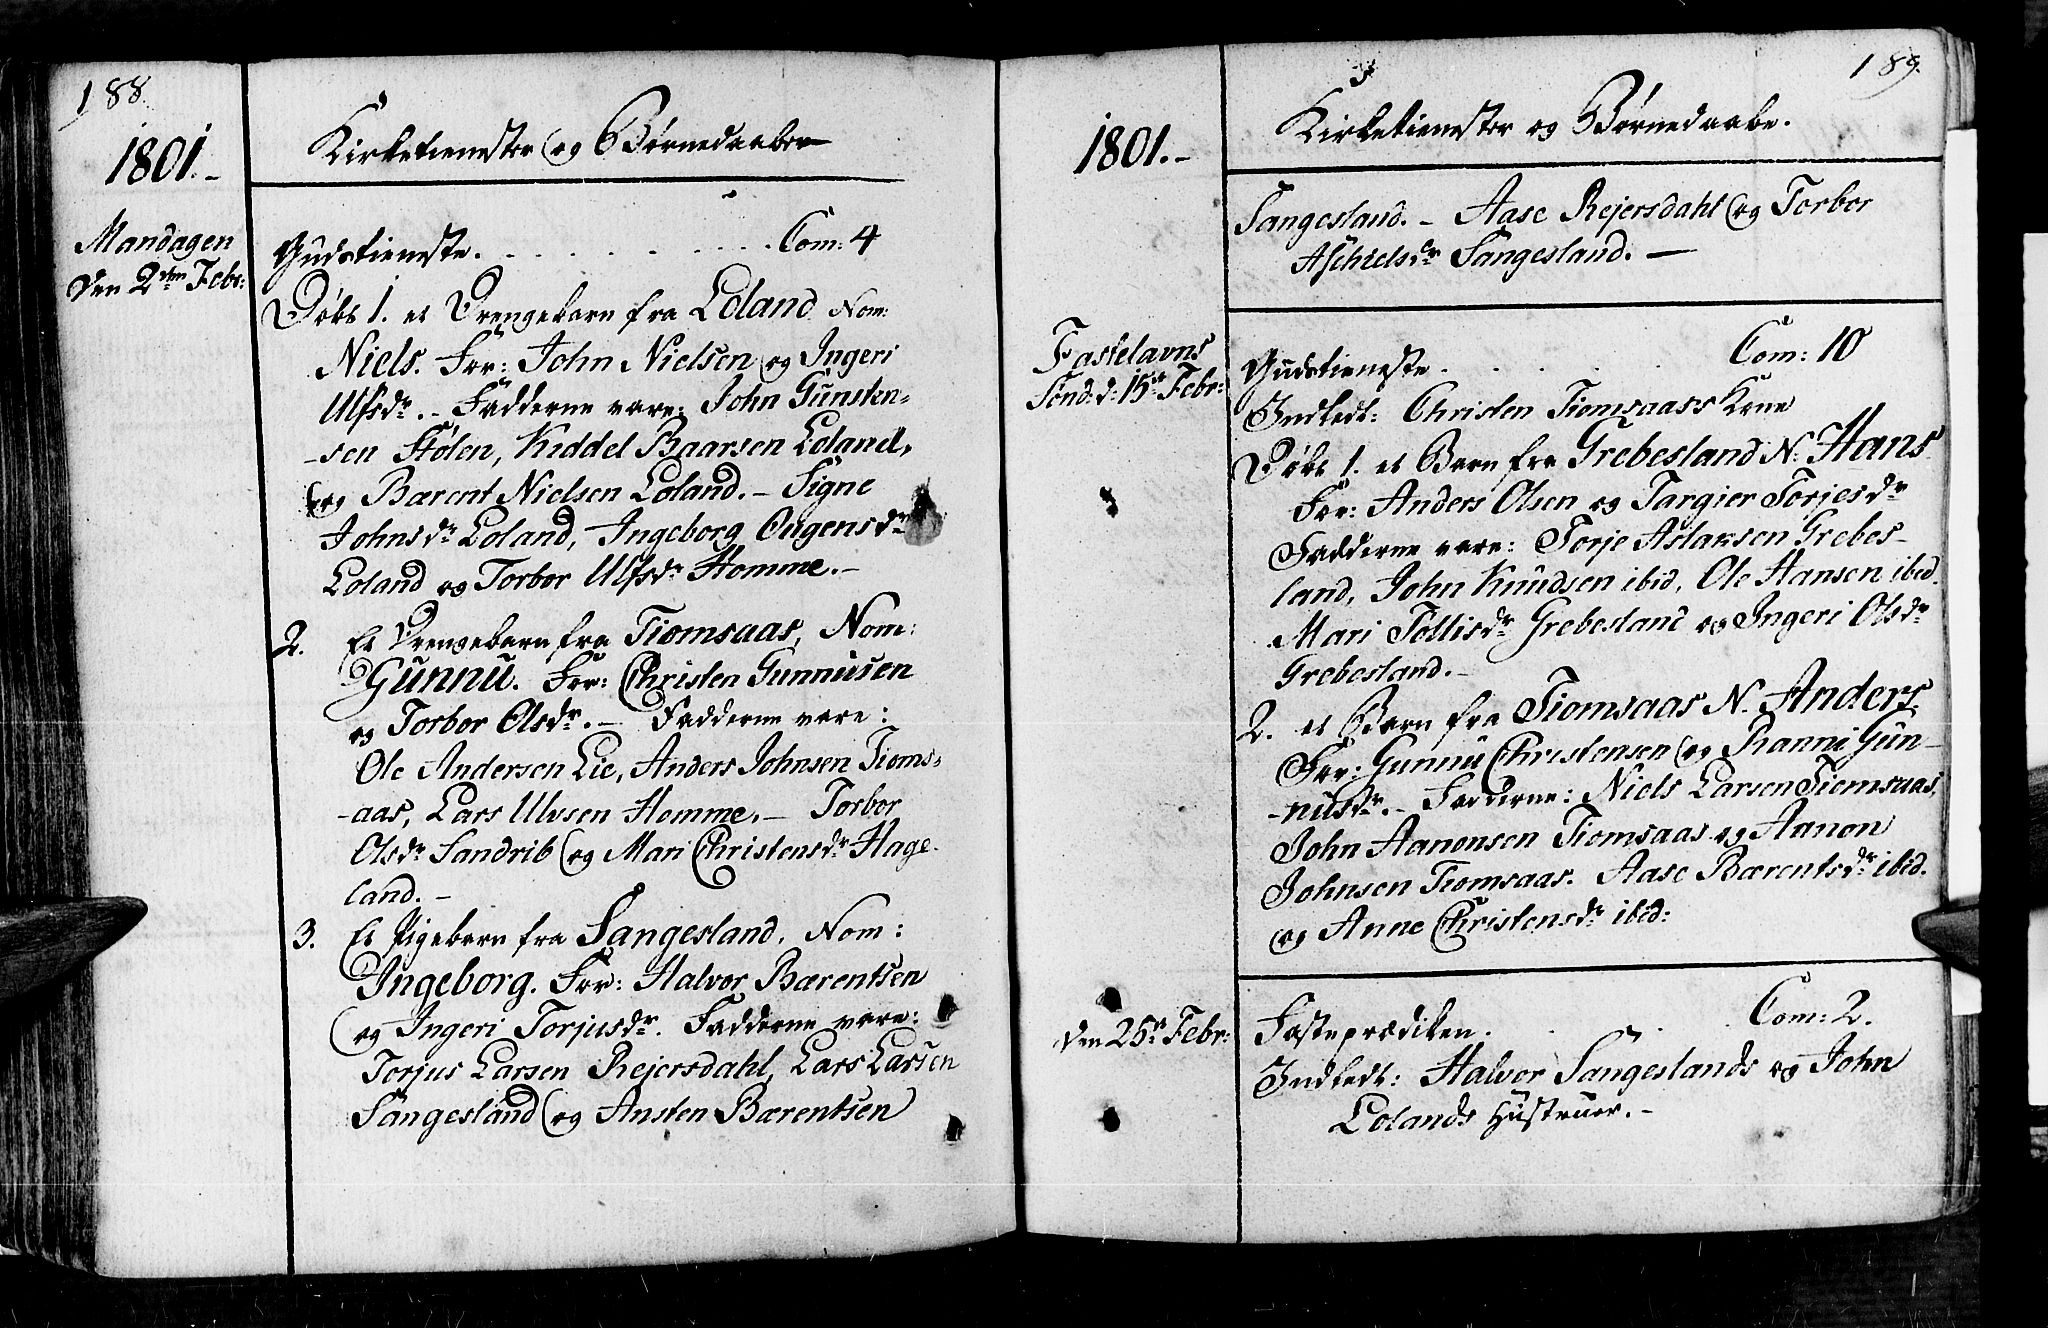 188.
1801.-
Kirketienester og Børnedaaber
Mandagen
den 2den Febr:
Gudstieneste. . . . . . . . . Com: 4
Døbt 1. et Drengebarn fra Loland Nom:
Niels. For: John Nielsen og Ingeri
Ulfsdr. - Fadderne vare: John Gunsten-
-sen Stølen, Kiddel Baarsen Loland,
og Bærent Nielsen Loland. - Signe
Johnsdr Loland, Ingeborg Ougensdr
Loland og Torbor Ulfsdr Homme. -
2. Et Drengebarn fra Tiomsaas, Nom:
Gunnu. For: Christen Gunnusen
og Torbor Olsdr. - Fadderne vare:
Ole Andersen Lie, Anders Johnsen Tioms-
-aas, Lars Ulvsen Homme. - Torbor
Olsdr Sandrib og Mari Christensdr Hage-
land. -
3. Et Pigebarn fra Sangesland, Nom:
Ingeborg. For: Halvor Bærentsen
og Ingeri Torjusdr. Fadderne vare:
Torjus Larsen Rejersdahl, Lars Larsen
Sangesland og Ansten Bærentsen
189.
1801.-
Kirketienester og Børnedaabe.
Sangesland. - Aase Rejersdahl og Torbor
Aschielsdr Sangesland. -
Fastelavns
Sønd: d: 15de Febr:
Gudstieneste . . . . . . Com: 10
Indledt: Christen Tiomsaass Kone
Døbt 1. et Barn fra Grebesland N: Hans
For: Anders Olsen og Targier Torjesdr
Fadderne vare: Torje Aslaksen Grebes-
land, John Knudsen ibid, Ole Hansen ibid.
Mari Tollisdr Grebesland og Ingeri Olsdr
Grebesland. -
2. et Barn fra Tiomsaas N. Anders.
For: Gunnu Christensen og Ranni Gun-
-nusdr. - Fadderne: Niels Larsen Tiomsaas,
John Aanonsen Tiomsaas og Aanon
Johnsen Tiomsaas. Aase Bærentsdr ibid.
og Anne Christensdr ibid:
den 25de Febr:
Fasteprædiken. . . . . Com: 2.
Indledt: Halvor Sangeslands og John
Lolands Hustruer. -